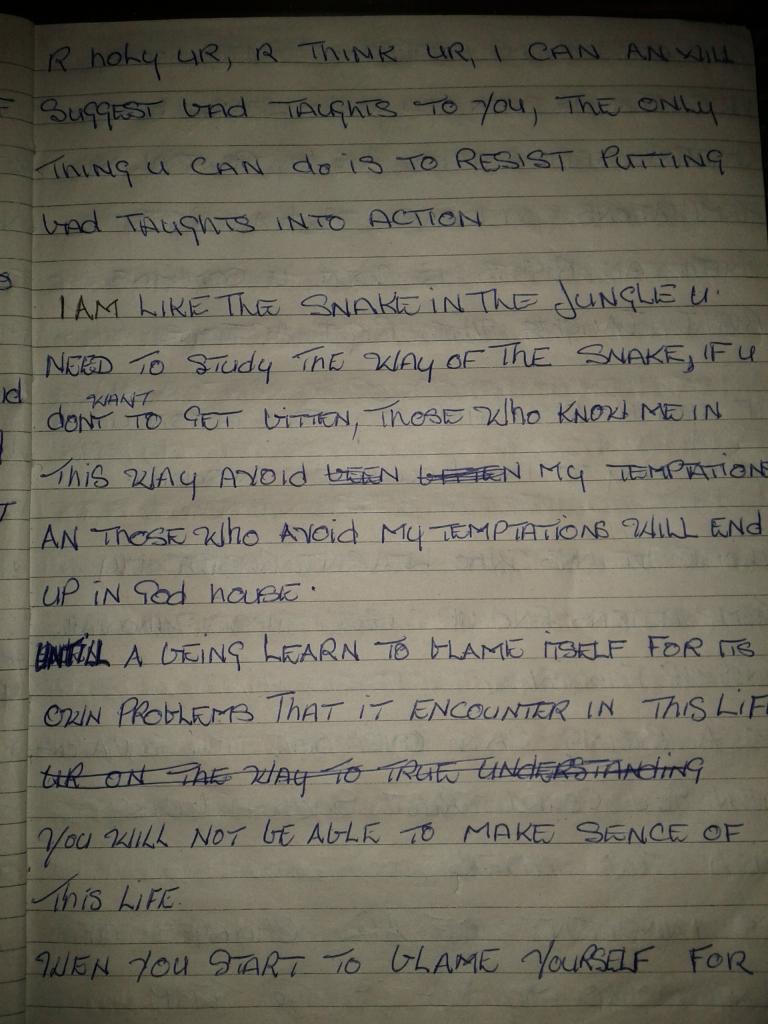 R holy UR, R THINK UR, I CAN AN WILL
SUGGEST bad TAUGHTS TO YOU, THE ONLY
THING U CAN do is TO RESIST PUTTING
bad TAUGHTS INTO ACTION
I AM LIKE THE SNAKE IN THE JUNGLE U.
NEED TO STUDY THE WAY OF THE SNAKE, IF U
DONT WANT TO GET BITTEN, THOSE WHO KNOW ME IN
THIS WAY AVOID BEEN BITTEN MY TEMPTATIONS
AN THOSE WHO AVOID MY TEMPTATIONS WILL END
UP IN God HOUSE.
UNTILL A BEING LEARN TO BLAME ITSELF FOR ITS
OWN PROBLEMS THAT IT ENCOUNTER IN THIS LIFE
UR ON THE WAY TO TRUE UNDERSTANDING
YOU WILL NOT BE ABLE TO MAKE SENCE OF
THIS LIFE.
WEN YOU START TO BLAME YOURSELF FOR